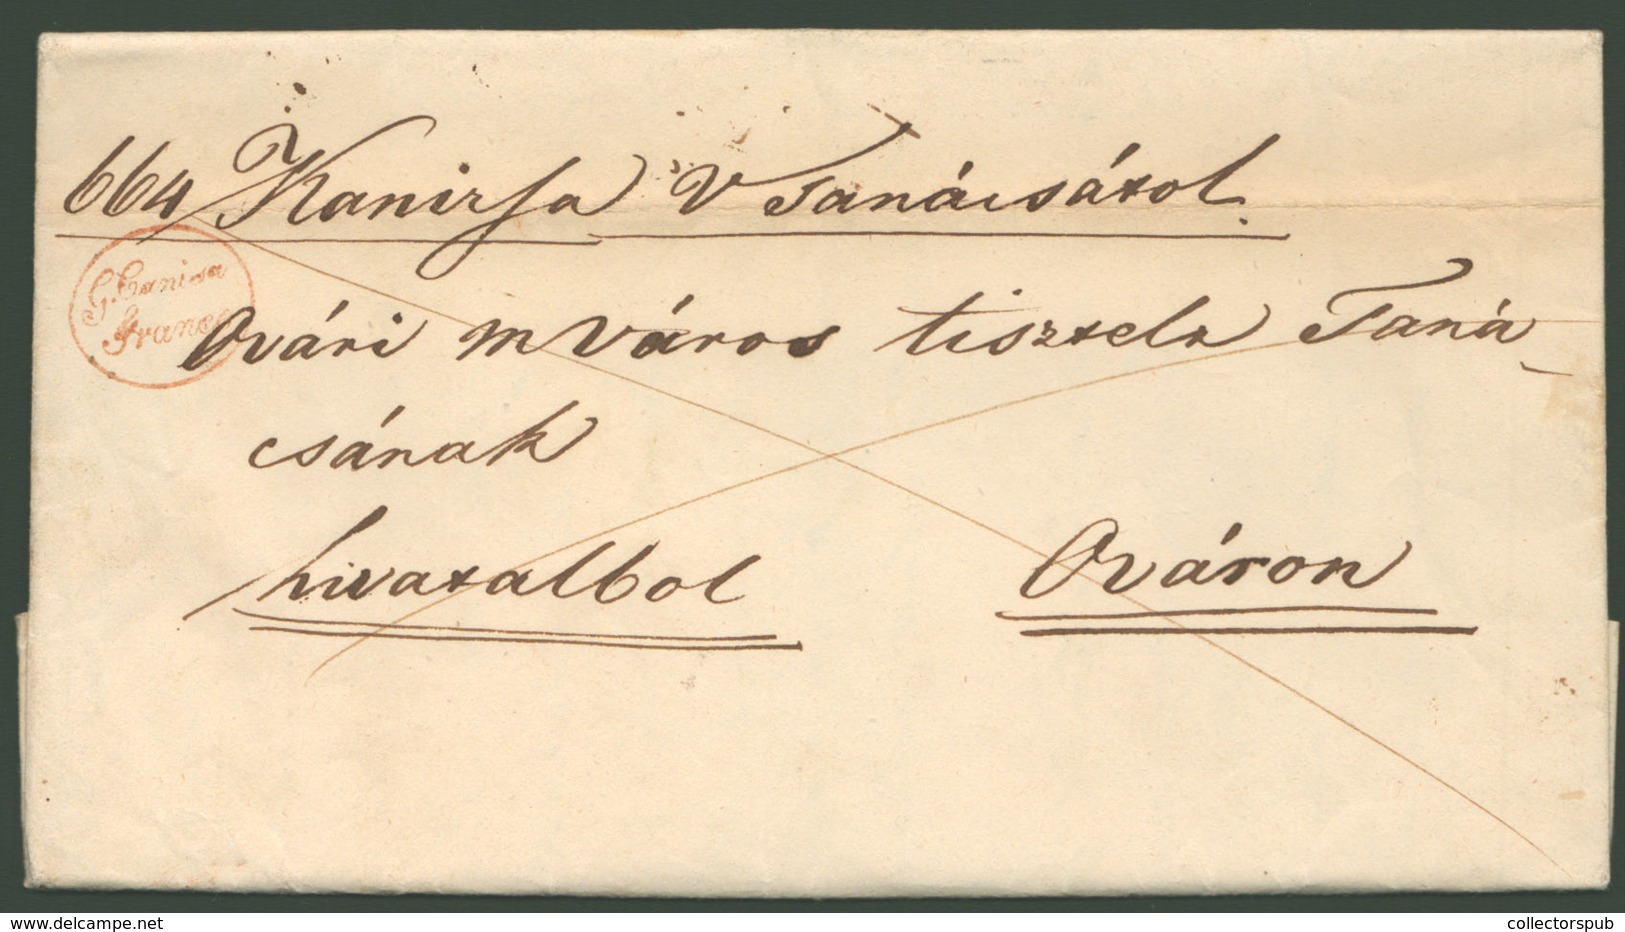 664 Kanizsa V Tanácsától.
G. Canisa
Franco
Ovári m Város tisztelt Taná-
csának
hivatalbol
Ováron
www.delcampe.net
collectorspub